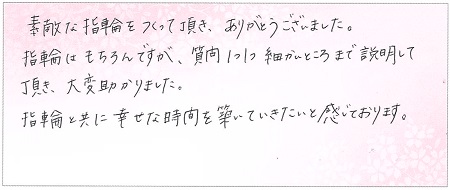 素敵な指輪をつくって頂き、ありがとうございました。
指輪はもちろんですが、質問1つ1つ細かいところまで説明して
頂き、大変助かりました。
指輪と共に幸せな時間を築いていきたいと感じております。